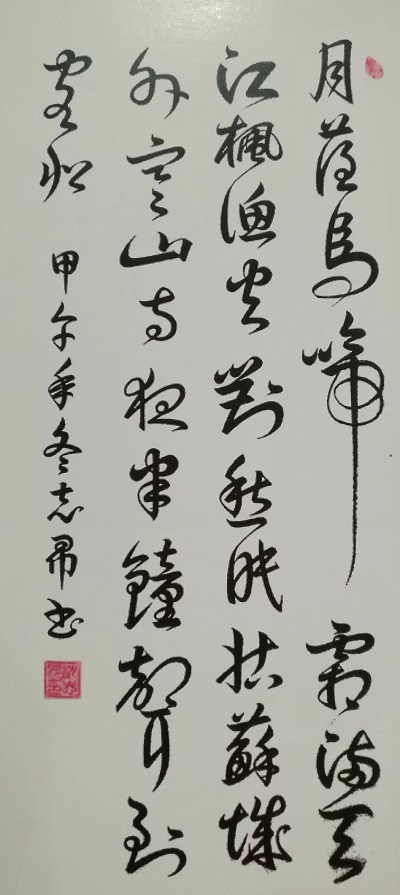 月落烏啼霜滿天
江楓漁火對愁眠姑蘇城
外寒山寺夜半鐘聲到
客船 甲午年冬志書